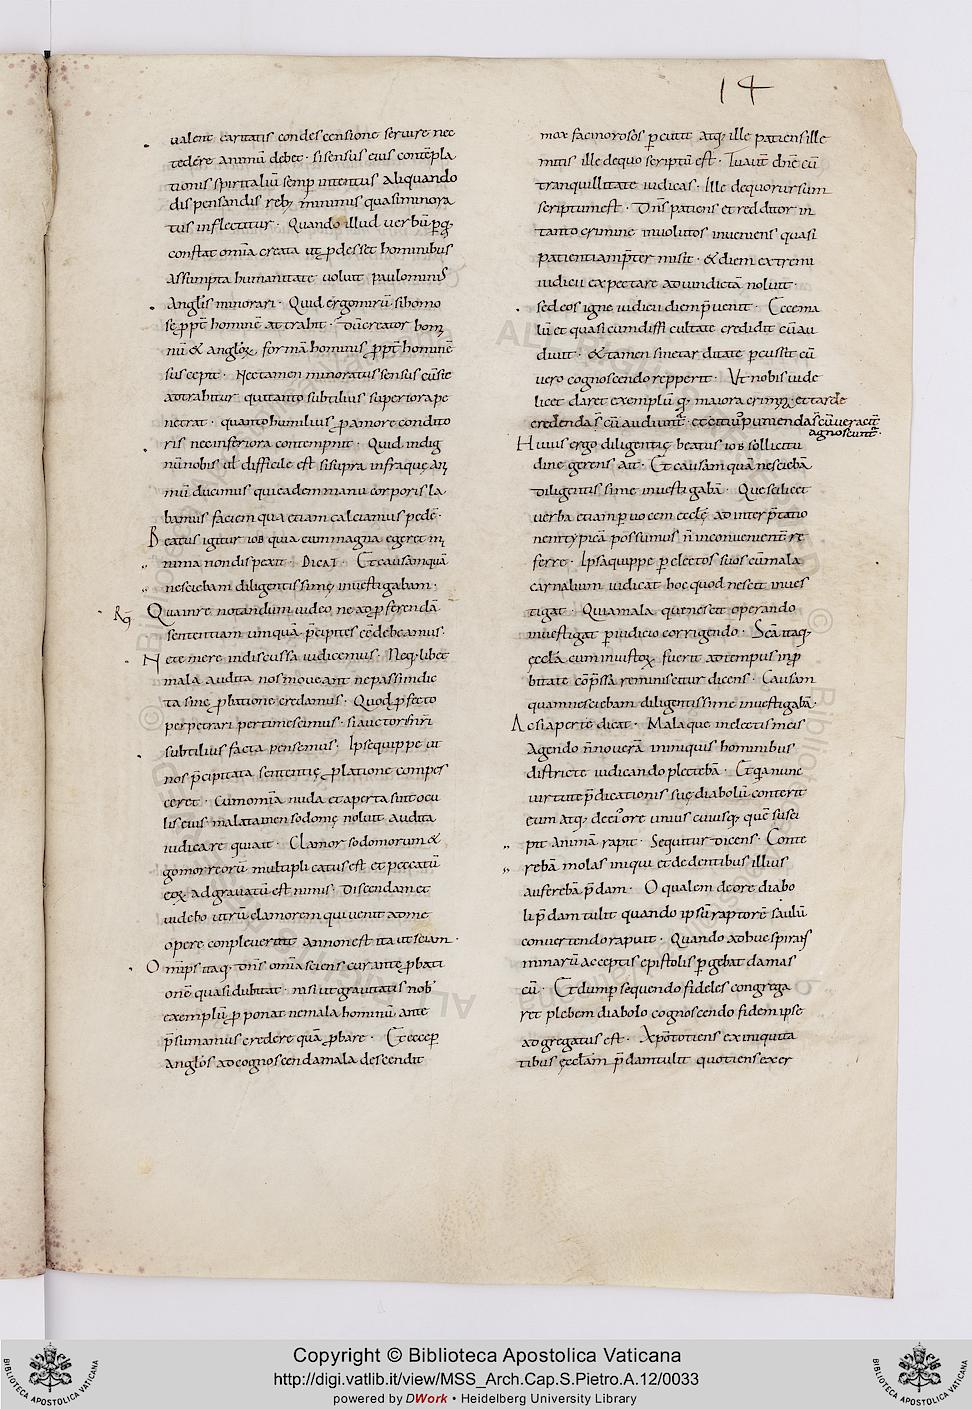 14
ualent caritatis condescensione seruire nec
tedere animū debet · si sensus eius contēpla
tionis spiritaliū semp intentus aliquando
dispensandis reb; minimis quasi minora
tus inflectitur · Quando illud uerbū p q;
constat omīa creata ut pdesset hominibus
assumpta humanitate uoluit paulominus
angelis minorari · Quid ergo mirū si homo
se ppt hominē attrahit · dū creator hom
nū & angloꝝ formā hominis ppt hominē
suscepit · Nec tamen minoratus sensus cū sic
adtrahitur qui tanto subtilius superiora pe
netrat · quanto humilius p amore condito
ris nec inferiora contempnit · Quid indig
nū nobis ul difficile est si supra infra que ani
mū ducimus qui eadem manu corporis la
bamus faciem qua etiam calciamus pedē ·
Beatus igitur iob quia cum magna egeret mi
nima non dispexit · Dicat · Et causam quā
nesciebam diligentissime inuestigabam ·
Qua in re notandum uideo ne ad pferendā
sententiam umquā p̄cipites ee debeamus ·
Ne temere indiscussa iudicemus · Neq; libet
mala audita nos moueant ne passim dic
ta sine pbatione credamus · Quod pfecto
perpetrari pertimescimus · si auctoris nri
subtilius facta pensemus · Ipse quippe ut
nos p̄cipitata sententie platione compes
ceret · Cum omīa nuda et aperta sint ocu
lis eius · mala tamen sodome noluit audita
iudicare qui ait · Clamor sodomorum &
gomorreorū multiplicatus est et peccatū
eoꝝ adgrauatū est nimis · Discendam et
uidebo utrū clamorem qui uenit ad me
opere conpleuerint an non est ita ut sciam ·
Omps itaq; dns omīa sciens cur ante pbati
onē quasi dubitat · nisi ut grauitatis nob
exemplū pponat ne mala hominū ante
p̄sumamus credere quā pbare · Et ecce p
anglos ad cognoscenda mala descendit
mox facinorosos pcutit atq; ille patiens ille
mitis ille de quo scriptū est · Tu autē dn̄e cū
tranquillitate iudicas · Ille de quo rursum
scriptum est · Dns patiens et redditor in
tanto crimine inuolutos inueniens quasi
patientiam p̄termisit · & diem extremi
iudicii expectare ad uindictā noluit ·
sed eos igne iudicii diem p̄uenit · Ecce ma
lū et quasi cum difficultate credidit cū au
diuit · & tamen sine tarditate pcussit cū
uero cognoscendo repperit · Ut nobis uide
licet daret exemplū qd maiora crimina et tarde
credenda s cū audiunt et citius punienda s cū ueracit
agnoscunt ·
Huius ergo diligentie beatus iob sollicitu
dine gerens ait · Et causam quā nesciebā
diligentissime inuestigabā · Que scilicet
uerba etiam p uocem eccle ad interp̄tatio
nem typicā possumus n inconuenient re
ferre · Ipsa quippe p electos suos cū mala
carnalium iudicat hoc quod nescit inues
tigat · Qua mala que nescit operando
inuestigat p iudicio corrigendo · Scā itaq;
eccla cum iniustoꝝ fuerit ad tempus inp
bitate cōp̄ssa reminiscitur dicens · Causam
quam nesciebam diligentissime inuestigabā ·
Ac si aperte dicat · Mala que in electis meis
agendo n noueram iniquis hominibus
districte iudicando plectebā · Et quia nunc
uirtute p̄dicationis sue diabolū conterit
eum atq; de ei ore unius cuiusq; quē susci
pit animā rapit · Sequitur dicens · Conte
rebā molas iniqui et de dentibus illius
auferebā p̄dam · O qualem de ore diabo
li p̄dam tulit quando ipsū raptorē saulū
conuertendo rapuit · Quando adhuc spirans
minarū acceptis epistolis pgebat damas
cū · Et dum psequendo fideles congrega
ret plebem diabolo cognoscendo fidem ipse
adgregatus est · Xpo totiens ex iniquita
tibus ecclam p̄dam tulit quotiens exer